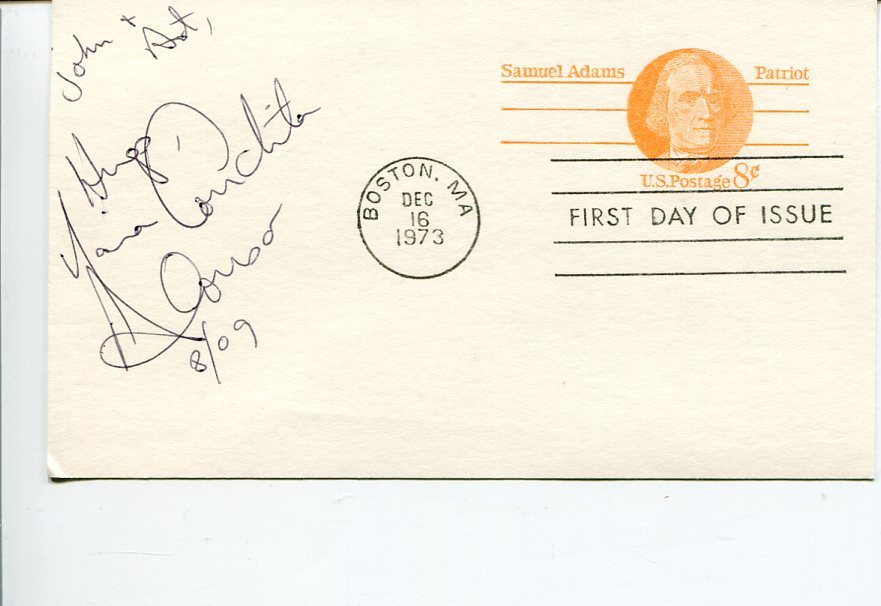 John + Art,
Hugs,
Maria Conchita
Alonso
8/09
Samuel Adams Patriot
U.S.Postage 8¢
BOSTON, MA
DEC
16
1973
FIRST DAY OF ISSUE